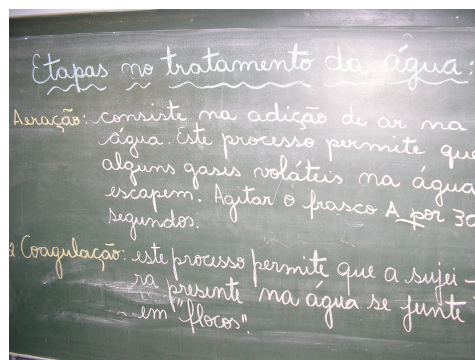 Etapas no tratamento da água:
Aeração: consiste na adição de ar na
água. Este processo permite que
alguns gases voláteis na água
escapem. Agitar o frasco A por 30
segundos.
2 Coagulação: este processo permite que a sujei-
ra presente na água se junte
em "flocos".